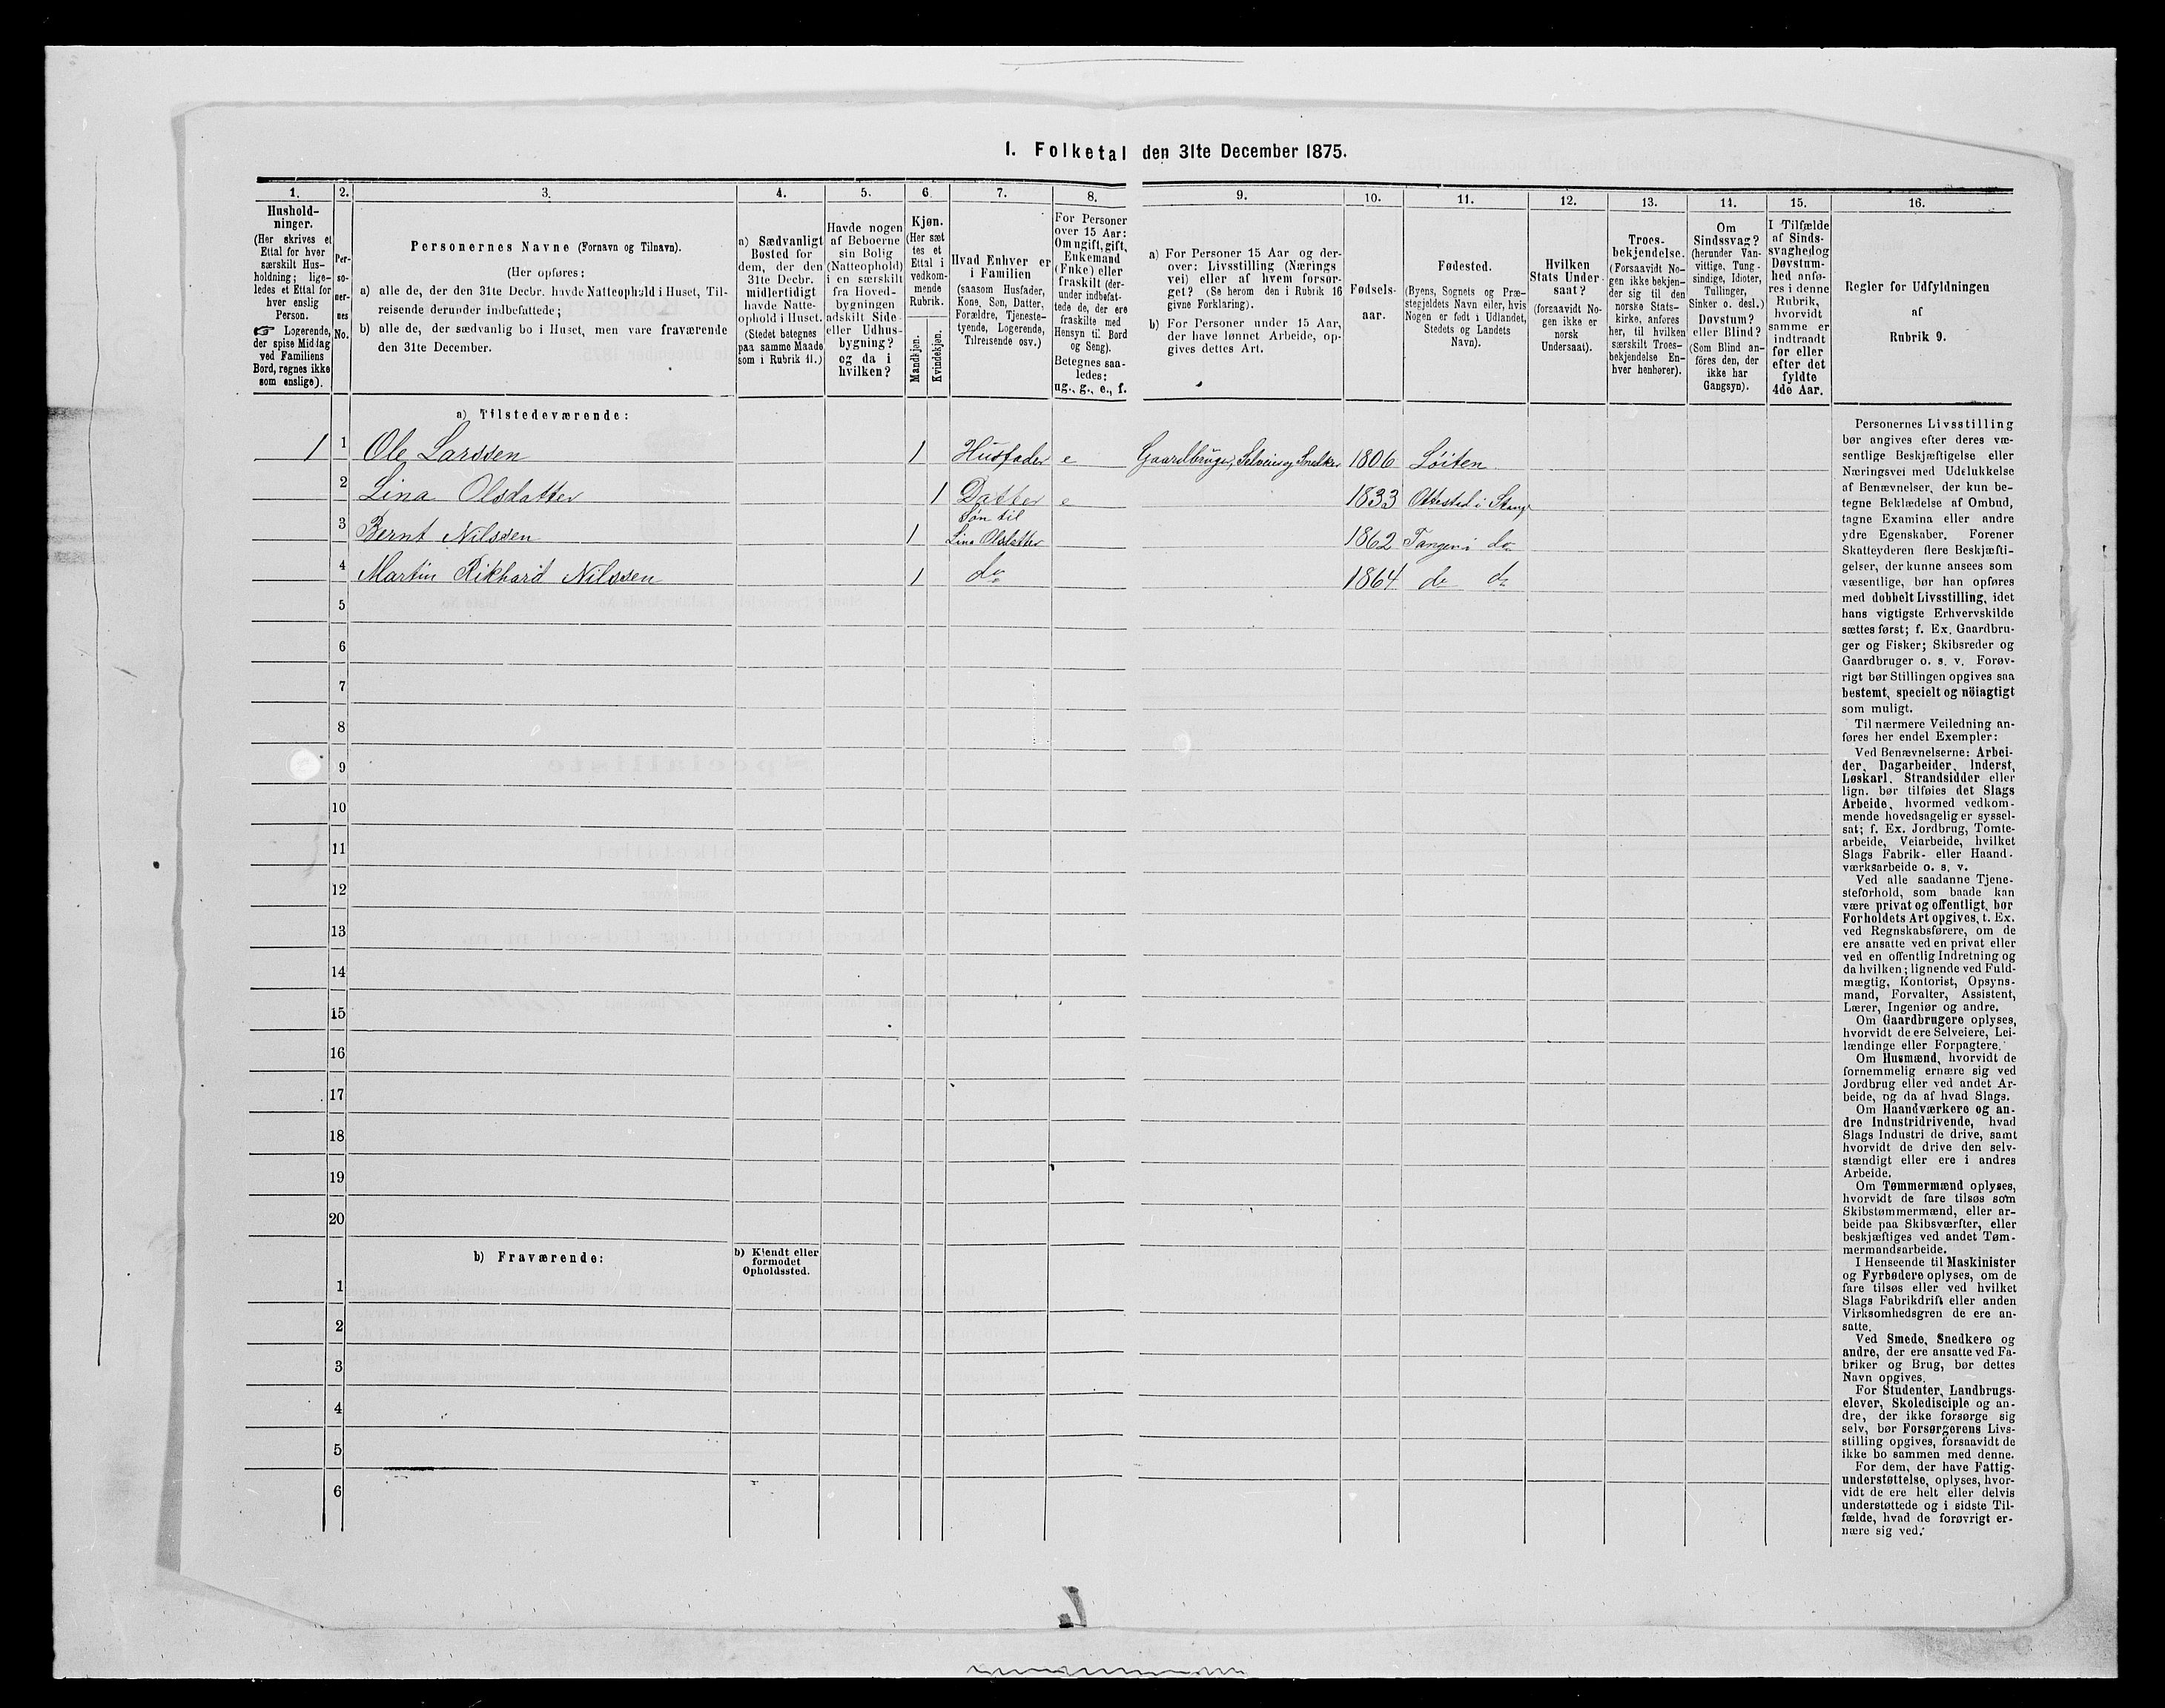 I. Folketal den 31te December 1875.
1. 2. 3. 4. 5. 6. 7. 8. 9. 10. 11. 12. 13. 14. 15. 16.
Hushold-
ninger.
(Her skrives et
Ettal for hver
særskilt Hus-
holdning; lige-
ledes et Ettal for
hver enslig
Person.
☞ Logerende,
der spise Middag
ved Familiens
Bord, regnes ikke
som enslige).
Per-
so-
ner-
nes
No.
Personernes Navne (Fornavn og Tilnavn).
(Her opføres:
a) alle de, der den 31te Decbr. havde Natteophold i Huset, Til-
reisende derunder indbefattede;
b) alle de, der sædvanlig bo i Huset, men vare fraværende
den 31te December.
a) Sædvanligt
Bosted for
dem, der den
31te Decbr.
midlertidigt
havde Natte-
ophold i Huset.
(Stedet betegnes
paa samme Maade
som i Rubrik 11.)
Havde nogen
af Beboerne
sin Bolig
(Natteophold)
i en særskilt
fra Hoved-
bygningen
adskilt Side-
eller Udhus-
bygning?
og da i
hvilken?
Kjøn.
(Her sæt
tes et
Ettal i
vedkom-
mende
Rubrik.
Mandkjøn.
Kvindekjøn.
Hvad Enhver er
i Familien
(saasom Husfader,
Kone, Søn, Datter,
Forældre, Tjeneste-
tyende, Logerende,
Tilreisende osv.)
For Personer
over 15 Aar:
Om ugift, gift,
Enkemand
(Enke) eller
fraskilt (der-
under indbefat-
tede de, der ere
fraskilte med
Hensyn til Bord
og Seng).
Betegnes saa-
ledes:
ug., g., e., f.
a) For Personer 15 Aar og der-
over: Livsstilling (Nærings
vei) eller af hvem forsør-
get? (Se herom den i Rubrik 16
givne Forklaring).
b) For Personer under 15 Aar,
der have lønnet Arbeide, op-
gives dettes Art.
Fødsels-
aar.
Fødested.
(Byens, Sognets og Præ-
stegjeldets Navn eller, hvis
Nogen er født i Udlandet,
Stedets og Landets
Navn).
Hvilken
Stats Under-
saat?
(forsaavidt No-
gen ikke er
norsk
Undersaat).
Troes-
bekjendelse.
(Forsaavidt No-
gen ikke bekjen-
der sig til den
norske Stats-
kirke, anføres
her, til hvilken
særskilt Troes-
bekjendelse En-
hver henhører).
Om
Sindssvag?
(herunder Van-
vittige, Tung-
sindige, Idioter,
Tullinger,
Sinker o. desl.)
Døvstum?
eller Blind?
(Som Blind an-
föres den, der
ikke har
Gangsyn).
I Tilfælde
af Sinds-
svaghed og
Døvstum-
hed anfø-
res i denne
Rubrik,
hvorvidt
samme er
indtraadt
før eller
efter det
fyldte
4de Aar.
Regler for Udfyldningen
af
Rubrik 9.
a) Tilstedeværende:
1 1 Ole Larssen 1 Husfader e Gaardbruger, Selveier og Snedker 1806 Löiten
2 Lina Olsdatter 1 Datter e 1833 Ottestad i Stange
3 Bernt Nilssen 1 Søn til
Lina Olsdatter 1862 Tangen i do
4 Martin Rikhard Nilssen 1 do 1864 do do
5
6
7
8
9
10
11
12
13
14
15
16
17
18
19
20
b) Fraværende:
b) Kjendt eller
formodet
Opholdssted.
1
2
3
4
5
6
Personernes Livsstilling
bør angives efter deres væ-
sentlige Beskjæftigelse eller
Næringsvei med Udelukkelse
af Benævnelser, der kun be-
tegne Beklædelse af Ombud,
tagne Examina eller andre
ydre Egenskaber. Forener
Skatteyderen flere Beskjæfti-
gelser, der kunne ansees som
væsentlige, bør han opføres
med dobbelt Livsstilling, idet
hans vigtigste Erhvervskilde
sættes først; f. Ex. Gaardbru-
ger og Fisker; Skibsreder og
Gaardbruger o. s. v. Forøv-
rigt bør Stillingen opgives saa
bestemt, specielt og nöiagtigt
som muligt.
Til nærmere Veiledning an-
føres her endel Exempler:
Ved Benævnelserne: Arbei-
der, Dagarbeider, Inderst,
Løskarl, Strandsidder eller
lign. bør tilføies det Slags
Arbeide, hvormed vedkom-
mende hovedsagelig er syssel-
sat; f. Ex. Jordbrug, Tomte-
arbeide, Veiarbeide, hvilket
Slags Fabrik- eller Haand-
værksarbeide o. s. v.
Ved alle saadanne Tjene-
steforhold, som baade kan
være privat og offentligt, bør
Forholdets Art opgives, t. Ex.
ved Regnskabsførere, om de
ere ansatte ved en privat eller
ved en offentlig Indretning og
da hvilken; lignende ved Fuld-
mægtig, Kontorist, Opsyns-
mand, Forvalter, Assistent,
Lærer, Ingeniør og andre.
Om Gaardbrugere oplyses,
hvorvidt de ere Selveiere, Lei-
lændinge eller Forpagtere.
Om Husmænd, hvorvidt de
fornemmelig ernære sig ved
Jordbrug eller ved andet Ar-
beide, og da af hvad Slags.
Om Haandværkere og an-
dre Industridrivende, hvad
Slags Industri de drive, samt
hvorvidt de drive den selv-
stændigt eller ere i andres
Arbeide.
Om Tømmermænd oplyses,
hvorvidt de fare tilsøs som
Skibstømmermænd, eller ar-
beide paa Skibsværfter, eller
beskjæftiges ved andet Tøm-
mermandsarbeide.
I Henseende til Maskinister
og Fyrbødere oplyses, om de
fare tilsøs eller ved hvilket
Slags Fabrikdrift eller anden
Virksomhedsgren de ere an-
satte.
Ved Smede, Snedkere og
andre, der ere ansatte ved Fa-
briker og Brug, bør dettes
Navn opgives.
For Studenter, Landbrugs-
elever, Skoledisciple og an-
dre, der ikke forsørge sig
selv, bør Forsørgerens Livs-
stilling opgives, forsaavidt de
ikke bo sammen med denne.
For dem, der have Fattig-
understøttelse, oplyses, hvor-
vidt de ere helt eller delvis
understøttede og i sidste Til-
fælde, hvad de forøvrigt er-
nære sig ved.